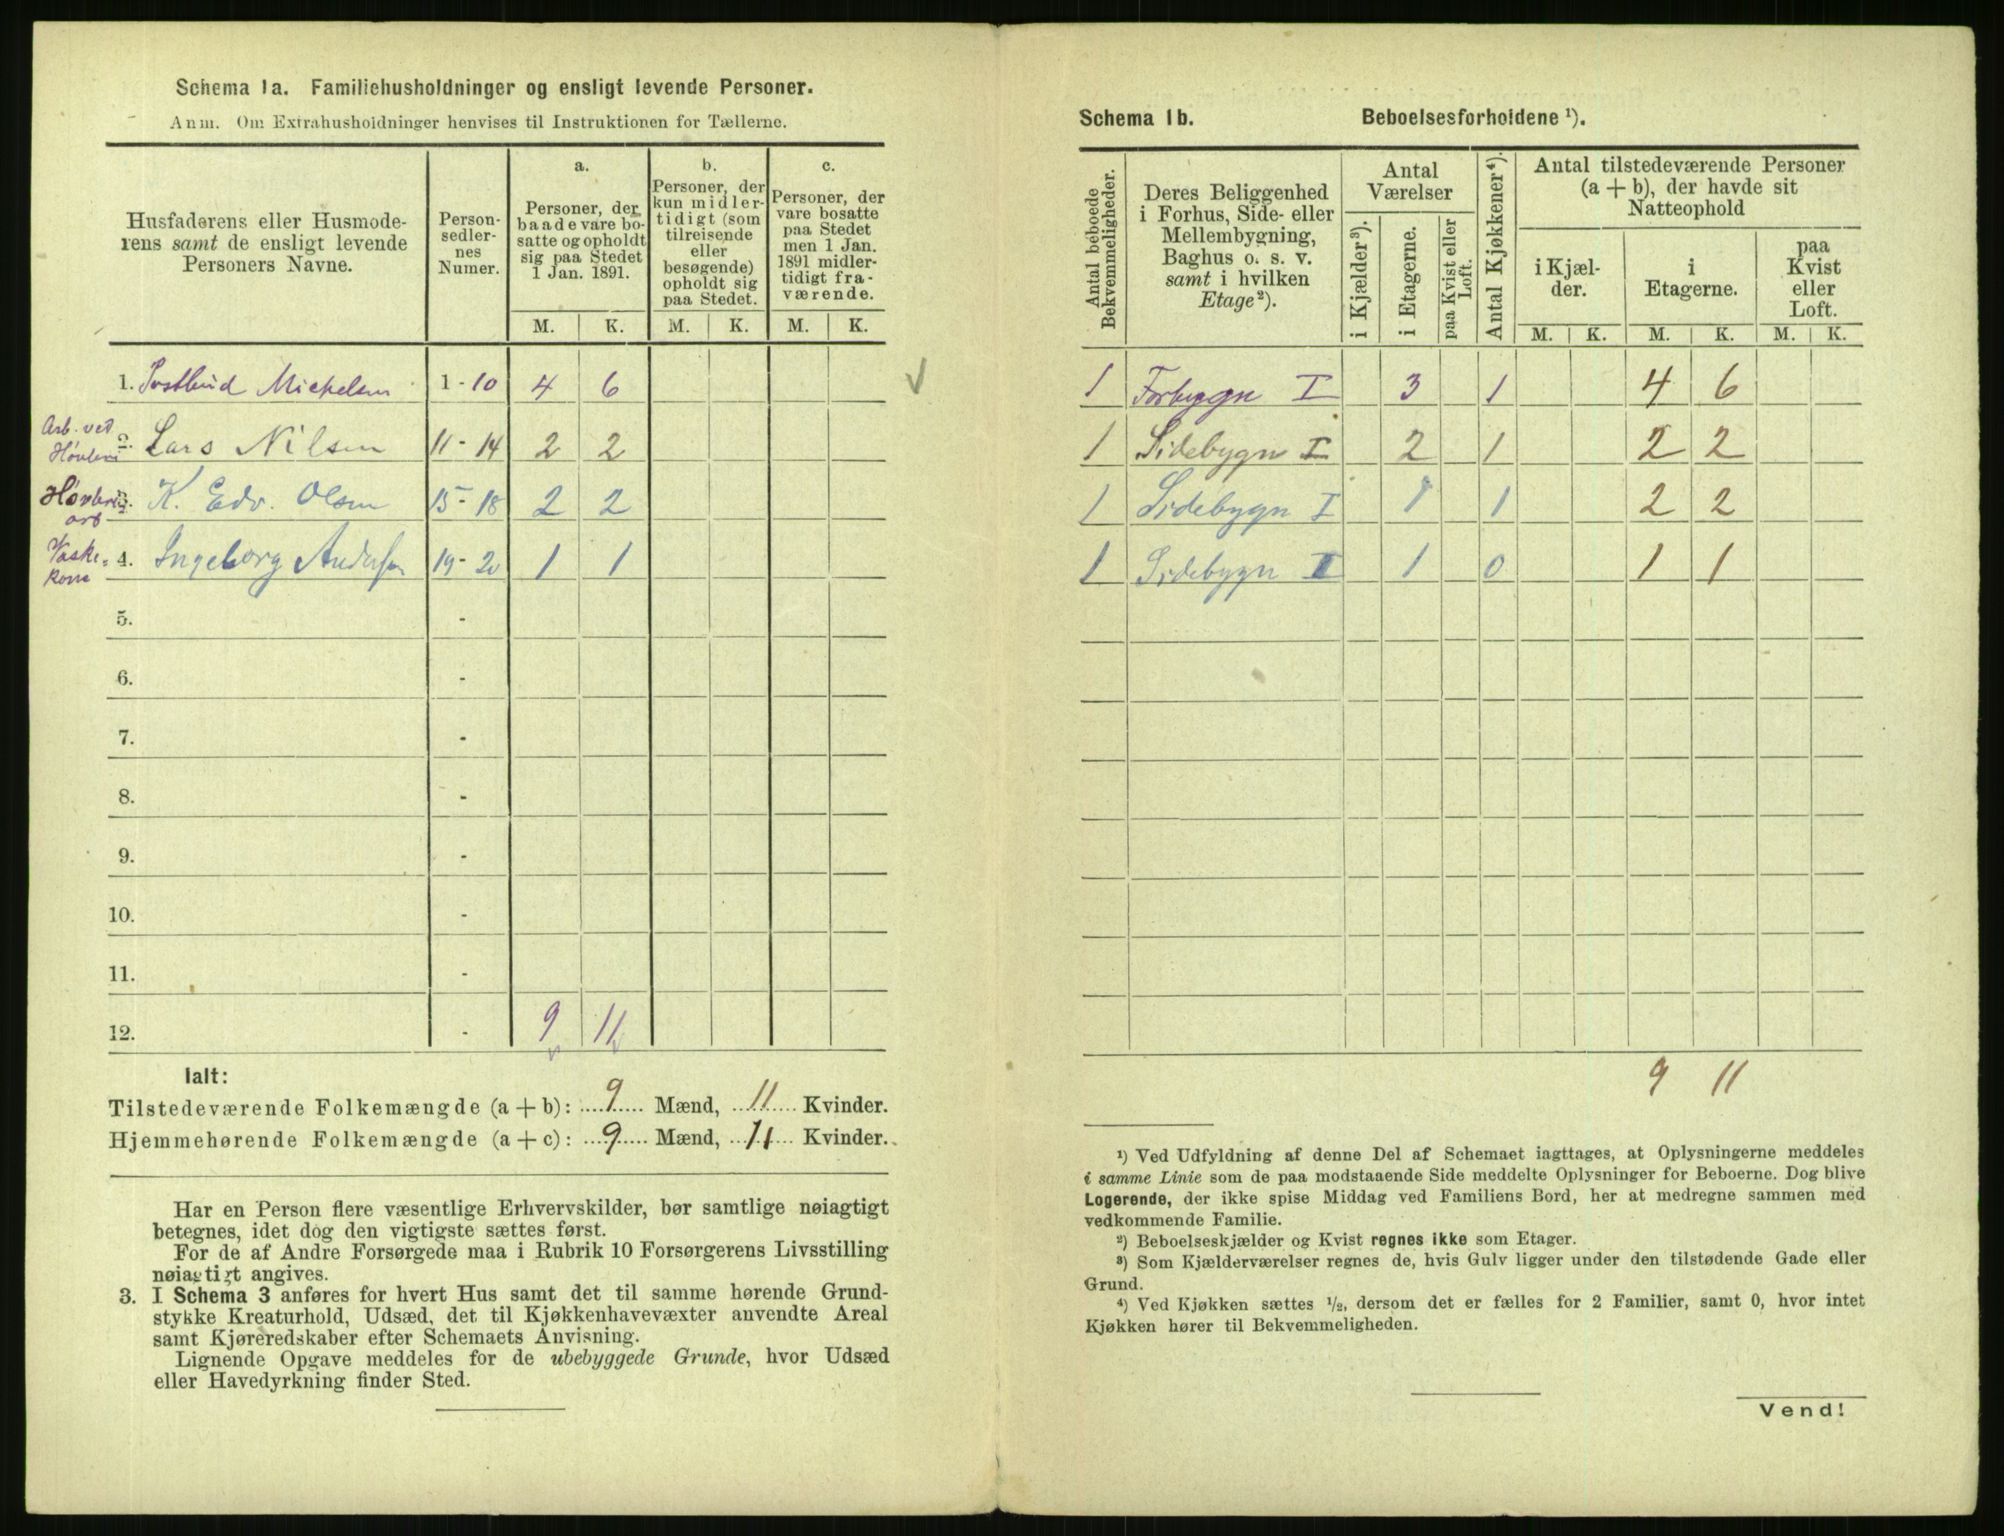 Schema 1a. Familiehusholdninger og ensligt levende Personer.
Anm. Om Extrahusholdninger henvises til Instruktionen for Tællerne.
Husfaderens eller Husmode-
rens samt de ensligt levende
Personers Navne.
Person-
sedler-
nes
Numer.
a.
Personer, der
baade vare bo-
satte og opholdt
sig paa Stedet
1 Jan. 1891.
M. K.
b.
Personer, der
kun midler-
tidigt (som
tilreisende
eller
besøgende)
opholdt sig
paa Stedet.
M. K.
c.
Personer, der
vare bosatte
paa Stedet
men 1 Jan.
1891 midler-
tidigt fra-
værende.
M. K.
1. Postbud Mickelsen 1 - 10 4 6
Arb. ved
2. Lars Nilsen 11 - 14 2 2
3. K. Edv. Olsen 15 - 18 2 2
arb
Vaske-
kone
4. Ingeborg Andersen 19 - 20 1 1
5. -
6. -
7. -
8. -
9. -
10. -
11. -
12. - 9 11
Ialt:
Tilstedeværende Folkemængde (a + b): 9 Mænd, 11 Kvinder.
Hjemmehørende Folkemængde (a + c): 9 Mænd, 11 Kvinder.
Har en Person flere væsentlige Erhvervskilder, bør samtlige nøiagtigt
betegnes, idet dog den vigtigste sættes først.
For de af Andre Forsørgede maa i Rubrik 10 Forsørgerens Livsstilling
nøiagtigt angives.
3. I Schema 3 anføres for hvert Hus samt det til samme hørende Grund-
stykke Kreaturhold, Udsæd, det til Kjøkkenhavevæxter anvendte Areal
samt Kjøreredskaber efter Schemaets Anvisning.
Lignende Opgave meddeles for de ubebyggede Grunde, hvor Udsæd
eller Havedyrkning finder Sted.
Schema 1b. Beboelsesforholdene ¹).
Antal beboede
Bekvemmeligheder.
Deres Beliggenhed
i Forhus, Side- eller
Mellembygning,
Baghus o. s. v.
samt i hvilken
Etage²).
Antal
Værelser
i Kjælder³).
i Etagerne.
paa Kvist eller
Loft.
Antal Kjøkkener⁴).
Antal tilstedeværende Personer
(a + b), der havde sit
Natteophold
i Kjæl-
der.
i
Etagerne.
paa
Kvist
eller
Loft.
M. K. M. K. M. K.
1 Forbygn I 3 1 4 6
1 Sidebygn I 2 1 2 2
1 Sidebygn I 1 1 2 2
1 Sidebygn II 1 0 1 1
9 11
¹) Ved Udfyldning af denne Del af Schemaet iagttages, at Oplysningerne meddeles
i samme Linie som de paa modstaaende Side meddelte Oplysninger for Beboerne. Dog blive
Logerende, der ikke spise Middag ved Familiens Bord, her at medregne sammen med
vedkommende Familie.
²) Beboelseskjælder og Kvist regnes ikke som Etager.
³) Som Kjælderværelser regnes de, hvis Gulv ligger under den tilstødende Gade eller
Grund.
⁴) Ved Kjøkken sættes ½, dersom det er fælles for 2 Familier, samt 0, hvor intet
Kjøkken hører til Bekvemmeligheden.
Vend!